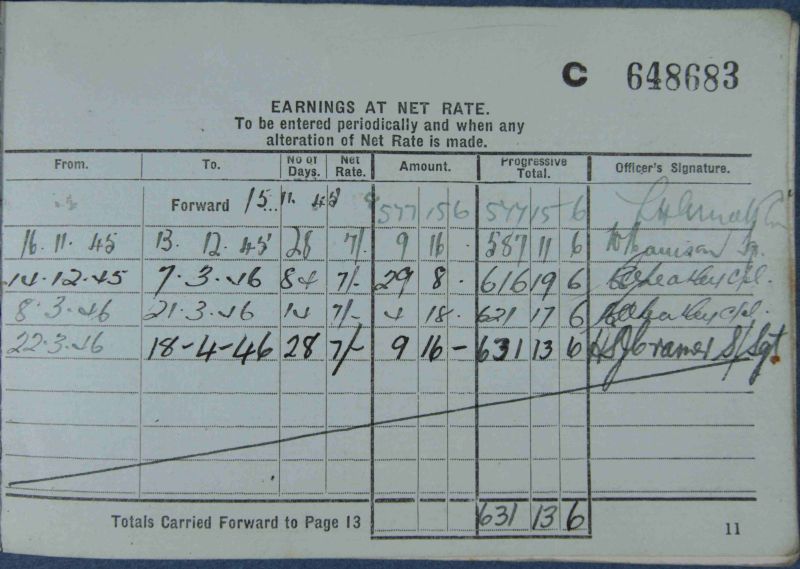 C 648683
EARNINGS AT NET RATE.
To be entered periodically and when any
alteration of Net Rate is made.
From. To. No of Days. Net Rate. Amount. Progressive Total. Officer's Signature.
Forward 15.11.45 577 15 6 577 15 6
16.11.45 13.12.45 28 7/- 9 16 . 587 11 6
14.12.45 7.3.46 84 7/- 29 8 . 616 19 6 Cpl.
8.3.46 21.3.46 14 7/- 4 18 . 621 17 6 Cpl.
22.3.46 18-4-46 28 7/- 9 16 - 631 13 6 Cramer S/Sgt
Totals Carried Forward to Page 13 631 13 6
11